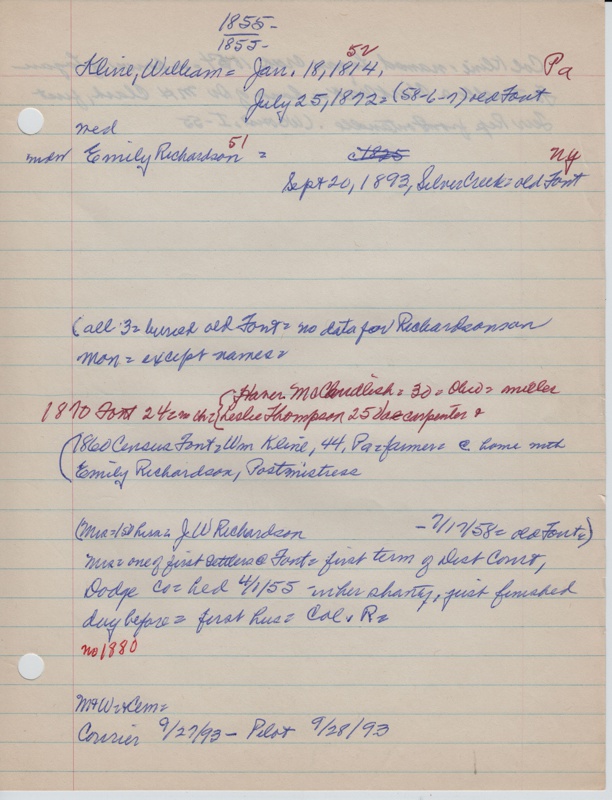 1855-
1855-
52
Kline, William = Jan. 18, 1814, Pa
July 25, 1872 = (58-6-7) old Font
med
51
Emily Richardson = c1825 NY
Sept 20, 1893, Silver Creek = old Font
(all 3 = buried old Font = no data for Richardson on
mon = except names =
{Haner McCandlish = 30 = Ohio = miller
1870 Font 24 = {Leslie Thompson 25 carpenter &
(1860 Census Font = Wm Kline, 44, Pa = farmer = @ home with
Emily Richardson, Postmistress
(Mrs = 1st hus = J.W Richardson - 7/17/58 = old Font =)
Mrs = one of first settlers @ Font = first term of Dist Court,
Dodge Co = held 4/1/55 in her shanty, just finished
day before = first hus = Col. R =
no 1880
M & W = & Cem =
Courier 9/27/93 - Pilot 9/28/93